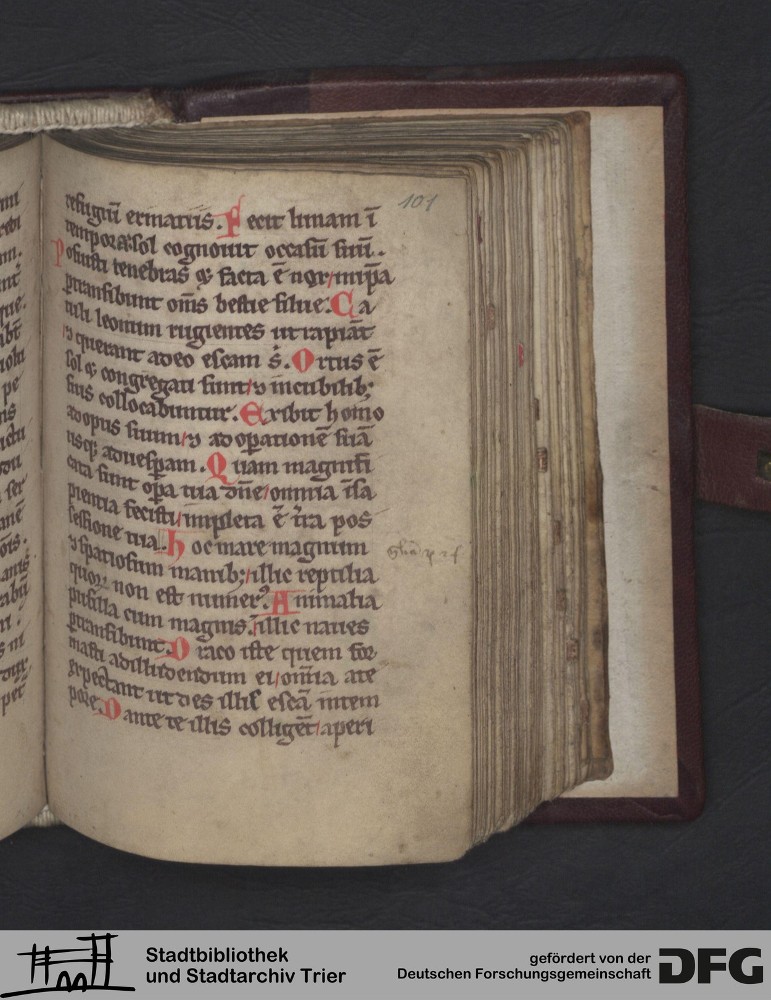 101
refugiū erinatiis. Fecit lunam ī
tempora sol cognouit occasū suū.
Posuisti tenebras ⁊ facta ē nox in ip̄a
p̄transibunt om̄s bestie silue. Ca
tuli leonum rugientes ut rapiāt
⁊ querant a deo escam s̄. Ortus ē
sol ⁊ congregati sunt ⁊ in cubilib;
suis collocabuntur. Exibit homo
ad opus suum ⁊ ad op̄ationē suā
usq; ad uesp̄am. Quam magnifi
cata sunt op̄a tua dn̄e omnia ī sa
pientia fecisti impleta ē t̄ra pos
sessione tua. Hoc mare magnum
⁊ spatiosum manib; illic reptilia
quoꝝ non est numerꝰ. Animalia
pusilla cum magnis. illic naues
p̄transibunt. Draco iste quem for
masti ad illudendum ei om̄ia a te
expectant ut des illis escā in tem
pore. Dante te illis colligēt aperi
Stadtbibliothek
und Stadtarchiv Trier
gefördert von der
Deutschen Forschungsgemeinschaft
DFG